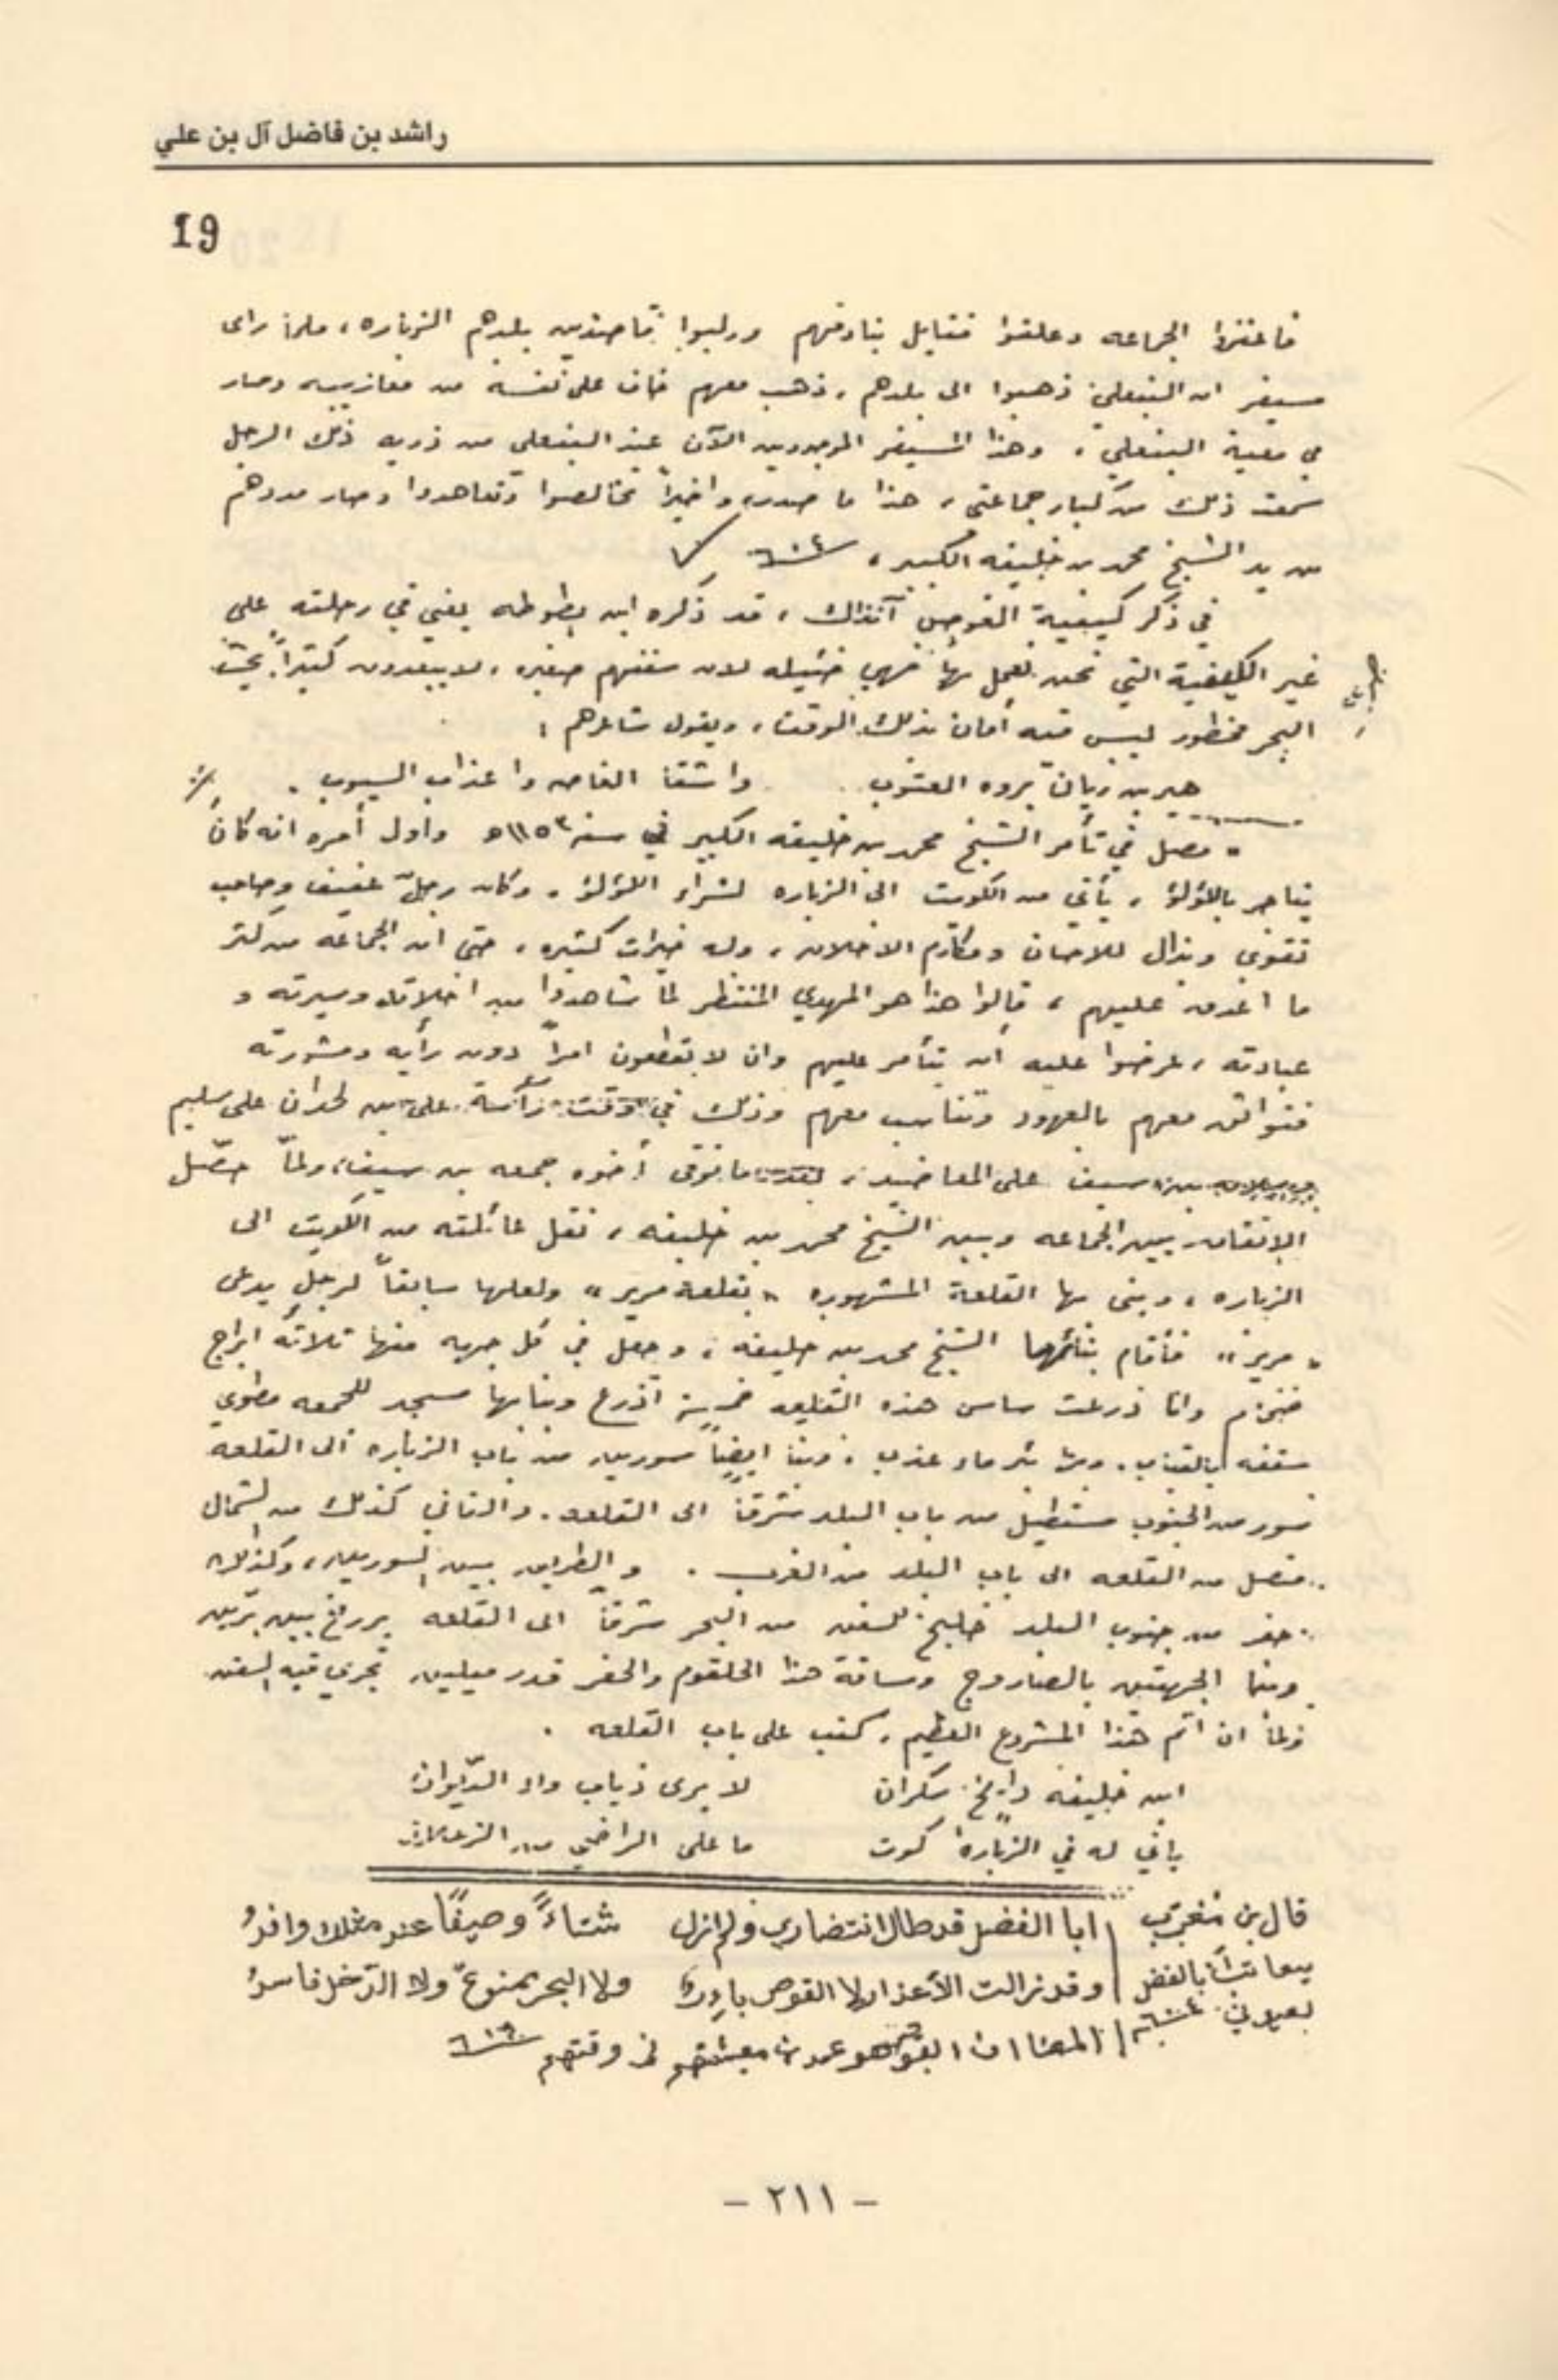 راشد بن فاضل آل بن علي
19
الجماعه وعلقوا فتايل بنادقهم وركبوا قاصدين بلدهم الزباره، فلما رای
مسيفر ان البنعلي ذهبوا الى بلدهم، ذهب معهم خاف على نفسه من وصار
في معية البنعلي، وهذا المسيفر الموجودين الآن عند البنعلي من ذريه ذلك الرجل
سمعت ذلك من كبار جماعتي، هذا ما صدر، واخيراً تخالصوا وتعاهدوا وصار
من يد الشيخ محمد بن خليفه الكبير،
في ذكر كيفية الغوص آنذاك، قد ذكره ابن بطوطه يعني في رحلته على
غير الكيفية التي نحن نعمل بها فهي ضئيله لان سفنهم صغيره، لا يبعدون كثيراً
البحر ليس فيه أمان بذلك الوقت، ويقول شاعرهم:
واعذاب السيوب.
، فصل في تأمر الشيخ محمد بن خليفه الكبير في سنه ١١٥٣ه واول أمره انه كان
يتاجر باللؤلؤ، يأتي من الكويت الى الزباره لشراء اللؤلؤ، وكان رجلٌ عفيف وصاحب
تقوى وبذال للاحسان ومكارم الاخلاق، وله خيرات كثيره، حتى ان الجماعه من كثر
ما اغدق عليهم، قالوا هذا هو المهدي المنتظر لما شاهدوا من اخلاقه وسيرته و
عبادته، عرضوا عليه أن يتأمر عليهم وان لا يقطعون امراً دون رأيه ومشورته
فتوافق معهم بالعهود وتناسب معهم وذلك في وقت رآسة على بن لحدان على سليم
سيف على المعاضيد، بعد ما توفى أخوه جمعه بن سيف، ولمّا حصّل
الاتفاق بين الجماعه وبين الشيخ محمد بن خليفه، نقل عائلته من الكويت الى
الزباره، وبنى بها القلعة المشهوره «بقلعة مرير» ولعلها سابقاً لرجلٍ يدعى
«مرير» فأقام بنائها الشيخ محمد بن خليفه، وجعل في كل جهه منها ثلاثه ابراج
وانا ذرعت ساس هذه القليعه خمسة آذرع وبنا بها مسجد للجمعه مطوي
سقفه بالقباب. وبها بئر ماء عذب، وبنا ايضاً سورين من باب الزباره الى القلعة
سور من الجنوب مستطيل من باب البلد شرقاً الى القلعه. والثاني كذلك من الشمال
متصل من القلعه الى باب البلد من الغرب. والطريق بين السورين، وكذلك
حفر من جنوب البلد خليج للسفن من البحر شرقاً الى القلعه برزخ بين برّين
وبنا الجهتين بالصاروج ومسافة هذا الحلقوم والحفر قدر ميلين تجري فيه السفن
ولما ان اتم هذا المشروع العظيم، كتب على باب القلعه.
ابن خليفه دايخ سكران لا يرى ذياب واد الديوان
باني له في الزباره كوت ما على الراضي من الزعلان
قال بن ابا الفضل قد طال انتضاري ولم ازل شتاءً وصيفًا عند مثلك وافدُ
يعاتب أبا الفضل وقد زالت الأعذار لا القوص باردٌ ولا البحر ممنوعٌ ولا الدّخل فاسدُ
المعنا ان الغوص هو عمدة معيشتهم في وقتهم
- ٢١١ -